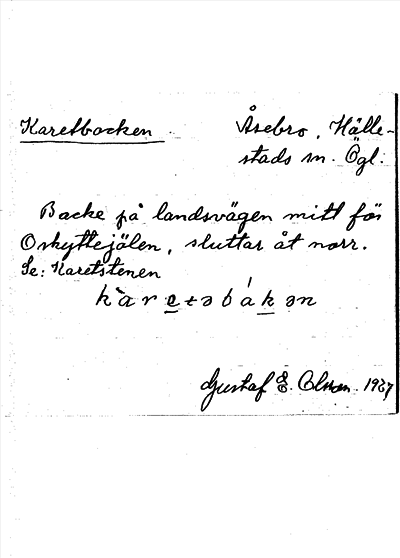 Karetbacken
Åsebro, Hälle-
stads sn. Ögl.
Backe på landsvägen mitt för
Oskyttejölen, sluttar åt norr.
Se: Karetstenen
kàretəbákən
Gustaf E. Olsson 1927